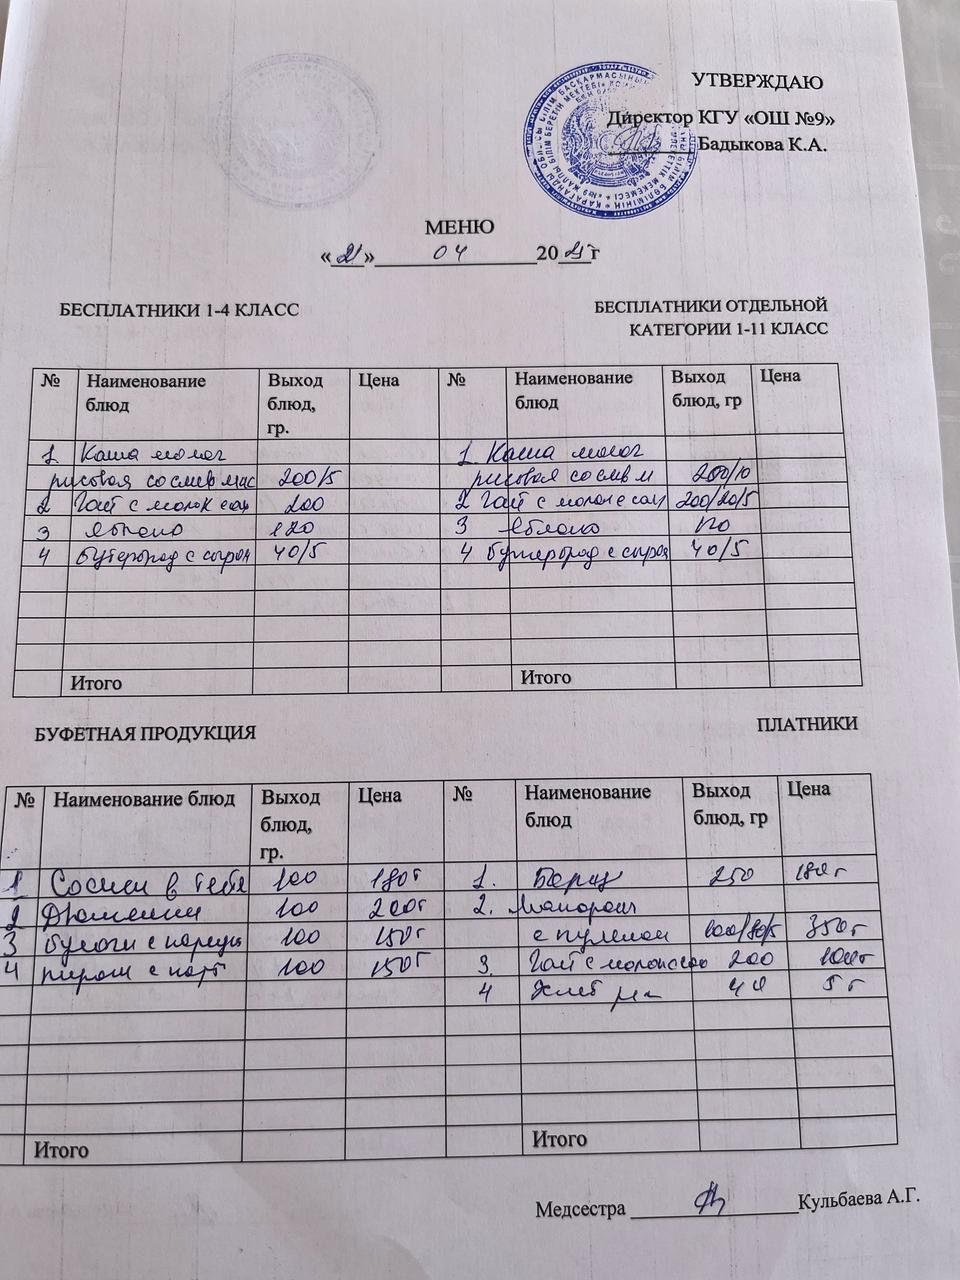 УТВЕРЖДАЮ
Директор КГУ «ОШ №9»
Бадыкова К.А.
МЕНЮ
«21» 04 20 г
БЕСПЛАТНИКИ 1-4 КЛАСС
БЕСПЛАТНИКИ ОТДЕЛЬНОЙ
КАТЕГОРИИ 1-11 КЛАСС
№ Наименование блюд Выход блюд, гр. Цена № Наименование блюд Выход блюд, гр Цена
1 Каша молоч 1. Каша молоч
рисовая со слив мас 200/5 рисовая со слив м 200/10
2 Чай с молок сах 200 2 Чай с молок сах 200/20/5
3 Яблоко 120 3 Яблоко 120
4 Бутерброд с сыром 40/5 4 бутерброд с сыром 40/5
Итого Итого
БУФЕТНАЯ ПРОДУКЦИЯ
ПЛАТНИКИ
№ Наименование блюд Выход блюд, гр. Цена № Наименование блюд Выход блюд, гр Цена
1 Сосиси в тесте 100 180т 1. Борщ 250 180т
2 100 200т 2. Макароны
3 булочки с 100 150т с 350т
4 пирож с карт 100 150т 3. Чай с молоком 200 100т
4 Хлеб 5т
Итого Итого
Медсестра Кульбаева А.Г.